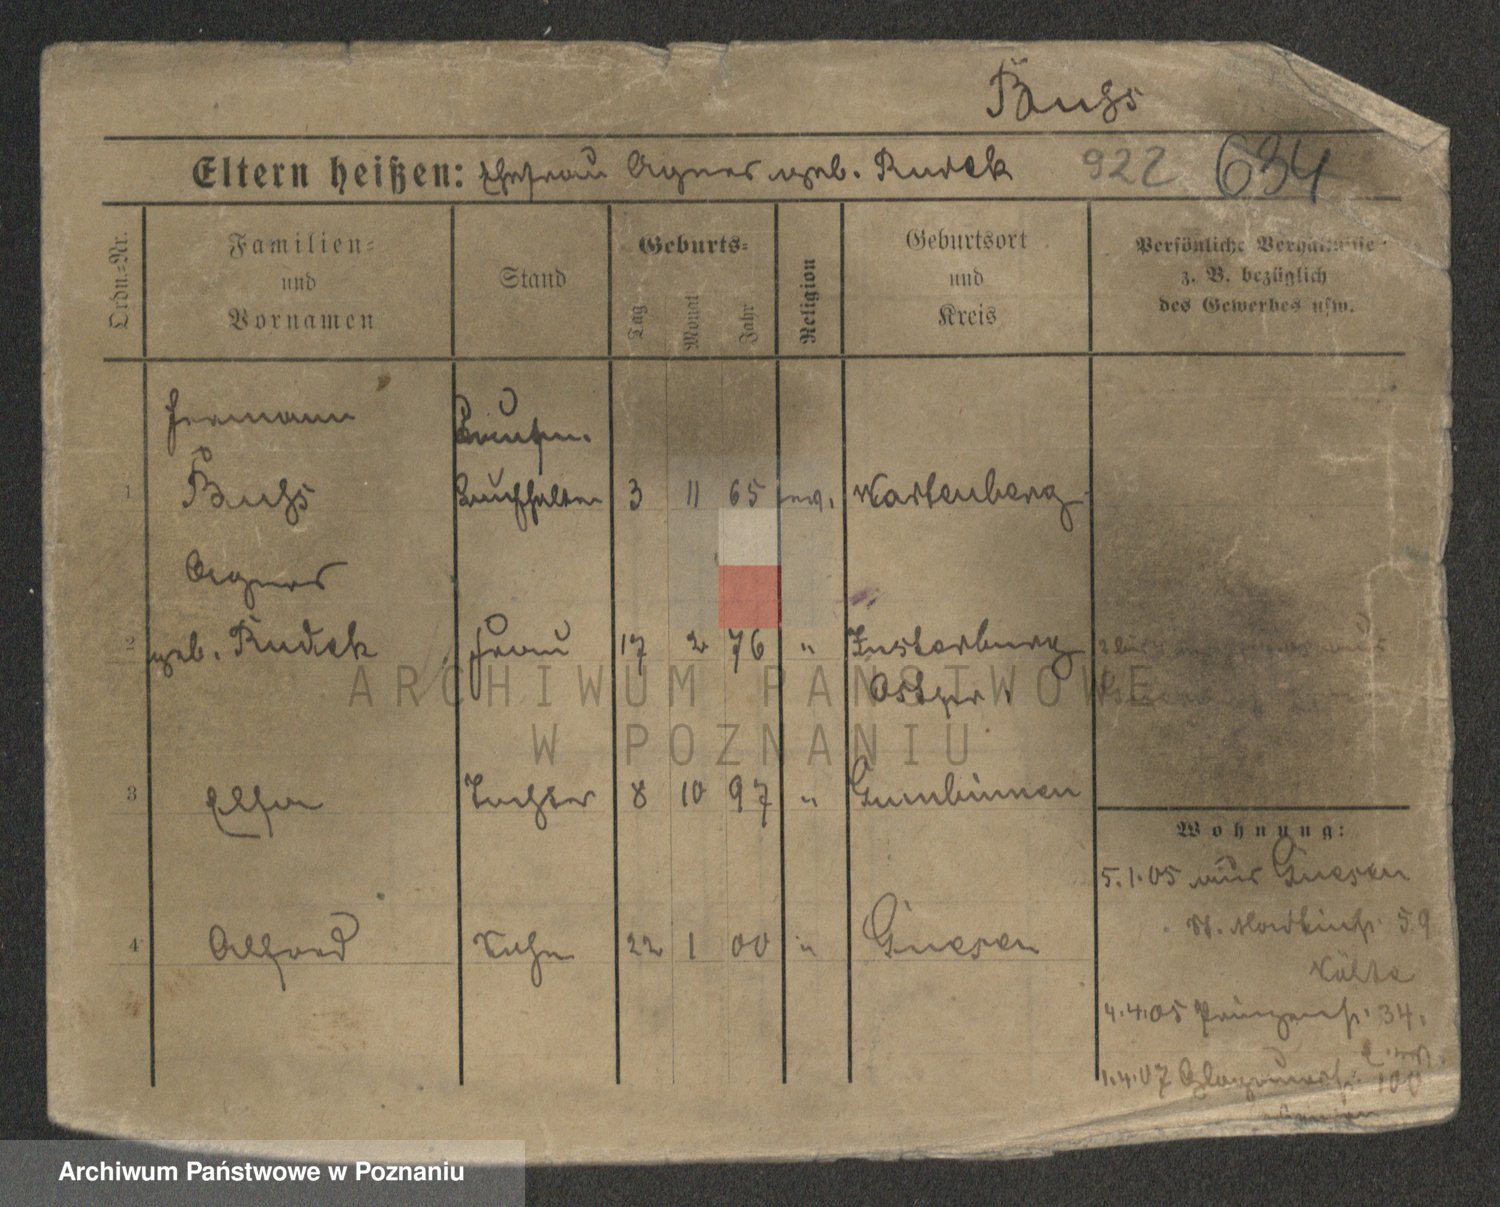 Buchs
Eltern heißen: Ehefrau Agnes geb. Rudek 922 634
Ordn.=Nr.
Familien=
und
Vornamen
Stand
Geburts=
Tag
Monat
Jahr
Religion
Geburtsort
und
Kreis
Persönliche Verhältnisse
z. B. bezüglich
des Gewerbes usw.
Hermann
1 Buchs Buchhalter 3 11 65 ev. Wartenberg
Agnes
2 geb. Rudek Frau 17 2 76 " Insterburg
Ostpr.
3 Elsa Tochter 8 10 97 " Gumbinnen
4 Alfred Sohn 22 1 00 " Gnesen
Wohnung:
5.1.05 aus Gnesen
59
4.4.05 Prinzenstr. 34.
1.4.07 Glogauerstr. 100
ARCHIWUM PAŃSTWOWE
W POZNANIU
Archiwum Państwowe w Poznaniu